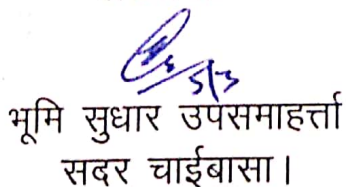 5/3
भूमि सुधार उपसमाहर्त्ता
सदर चाईबासा।